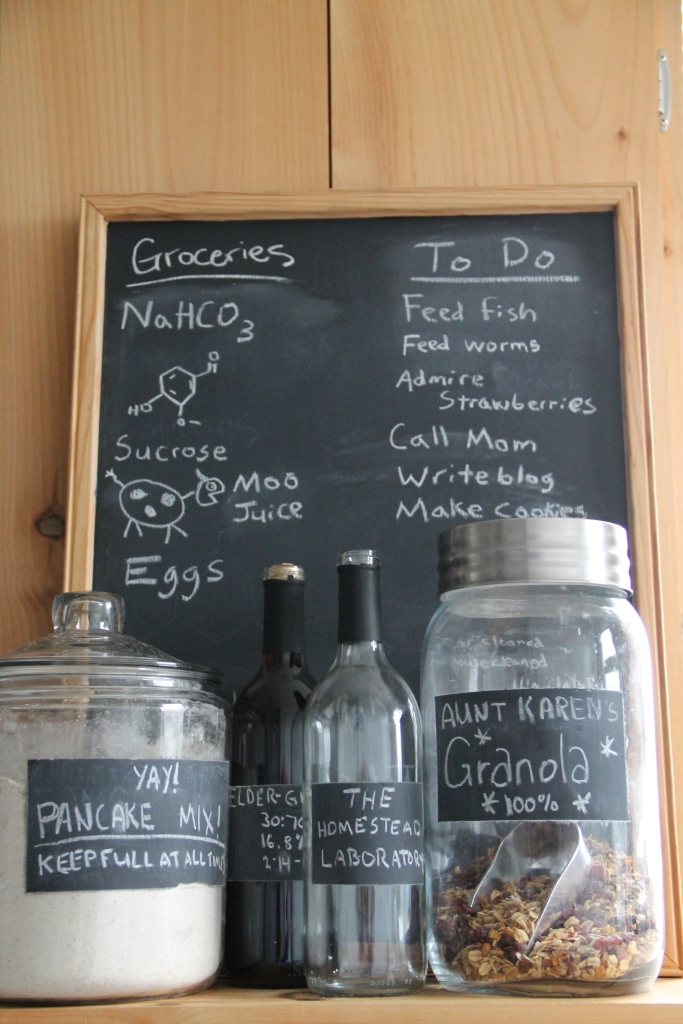 Groceries
NaHCO3
HO
O
O-
Sucrose
Moo
Juice
Eggs
To Do
Feed fish
Feed worms
Admire
Strawberries
Call Mom
Write blog
Make Cookies
cleaned
cleaned
YAY!
PANCAKE MIX!
KEEP FULL AT ALL TIMES
ELDER-G
30:70
16.8%
2-14-
THE
HOMESTEAD
LABORATORY
AUNT KAREN'S
Granola
100%